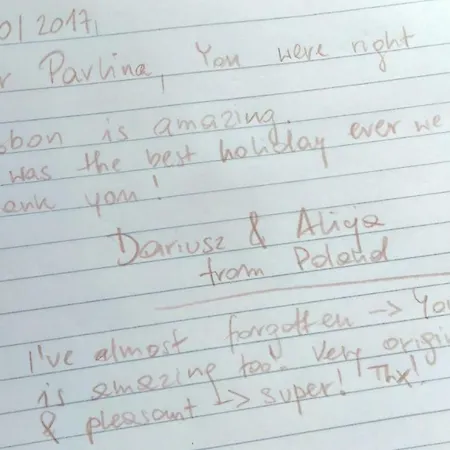 0/2017,
r Pavlina, You were right
sbon is amazing.
was the best holiday ever we
ank you!
Dariusz & Alicja
from Poland
I've almost forgotten -> You
is amazing too! Very origi
& pleasant -> super! Thx!